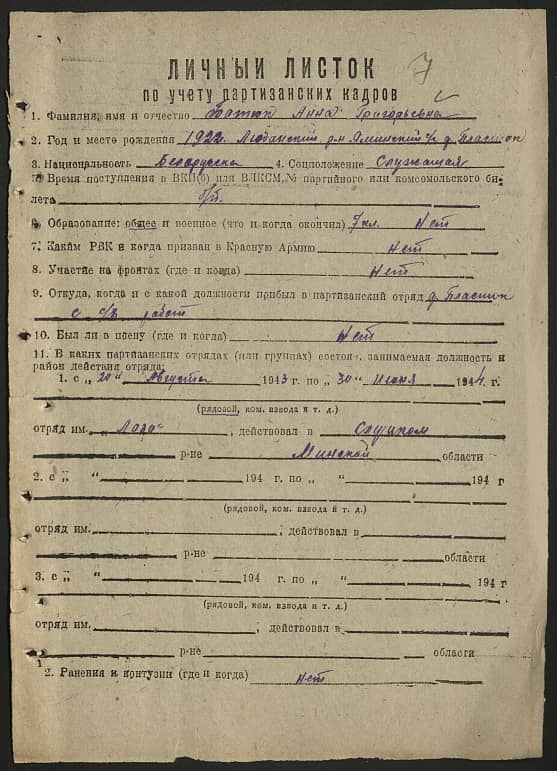 7
ЛИЧНЫЙ ЛИСТОК
по учету партизанских кадров
1. Фамилия, имя и отчество Анна Григорьевна
2. Год и место рождения 1922 Любанский р-н Яминский с/с д. Пласток
3. Национальность Белорусска 4. Соцположение Служащая
5. Время поступления в ВКП(б) или ВЛКСМ, № партийного или комсомольского би-
лета б/п.
6. Образование: общее и военное (что и когда окончил) 7 кл. Нет
7. Каким РВК и когда призван в Красную Армию Нет
8. Участие на фронтах (где и когда) Нет
9. Откуда, когда и с какой должности прибыл в партизанский отряд д. Пласток
с с/х работ
10. Был ли в плену (где и когда) Нет
11. В каких партизанских отрядах (или группах) состоял, занимаемая должность и
район действия отряда:
1. с „20“ Августа 1943 г. по „30“ Июня 1944 г.
(рядовой, ком. взвода и т. д.)
отряд им. „Лазо“, действовал в Слуцком
р-не Минской области
2. с „ “ 194 г. по „ “ 194 г
(рядовой, ком. взвода и т. д.)
отряд им. , действовал в
р-не области
3. с „ “ 194 г. по „ “ 194 г
(рядовой, ком. взвода и т. д.)
отряд им. , действовал в
р-не области
12. Ранения и контузии (где и когда) нет